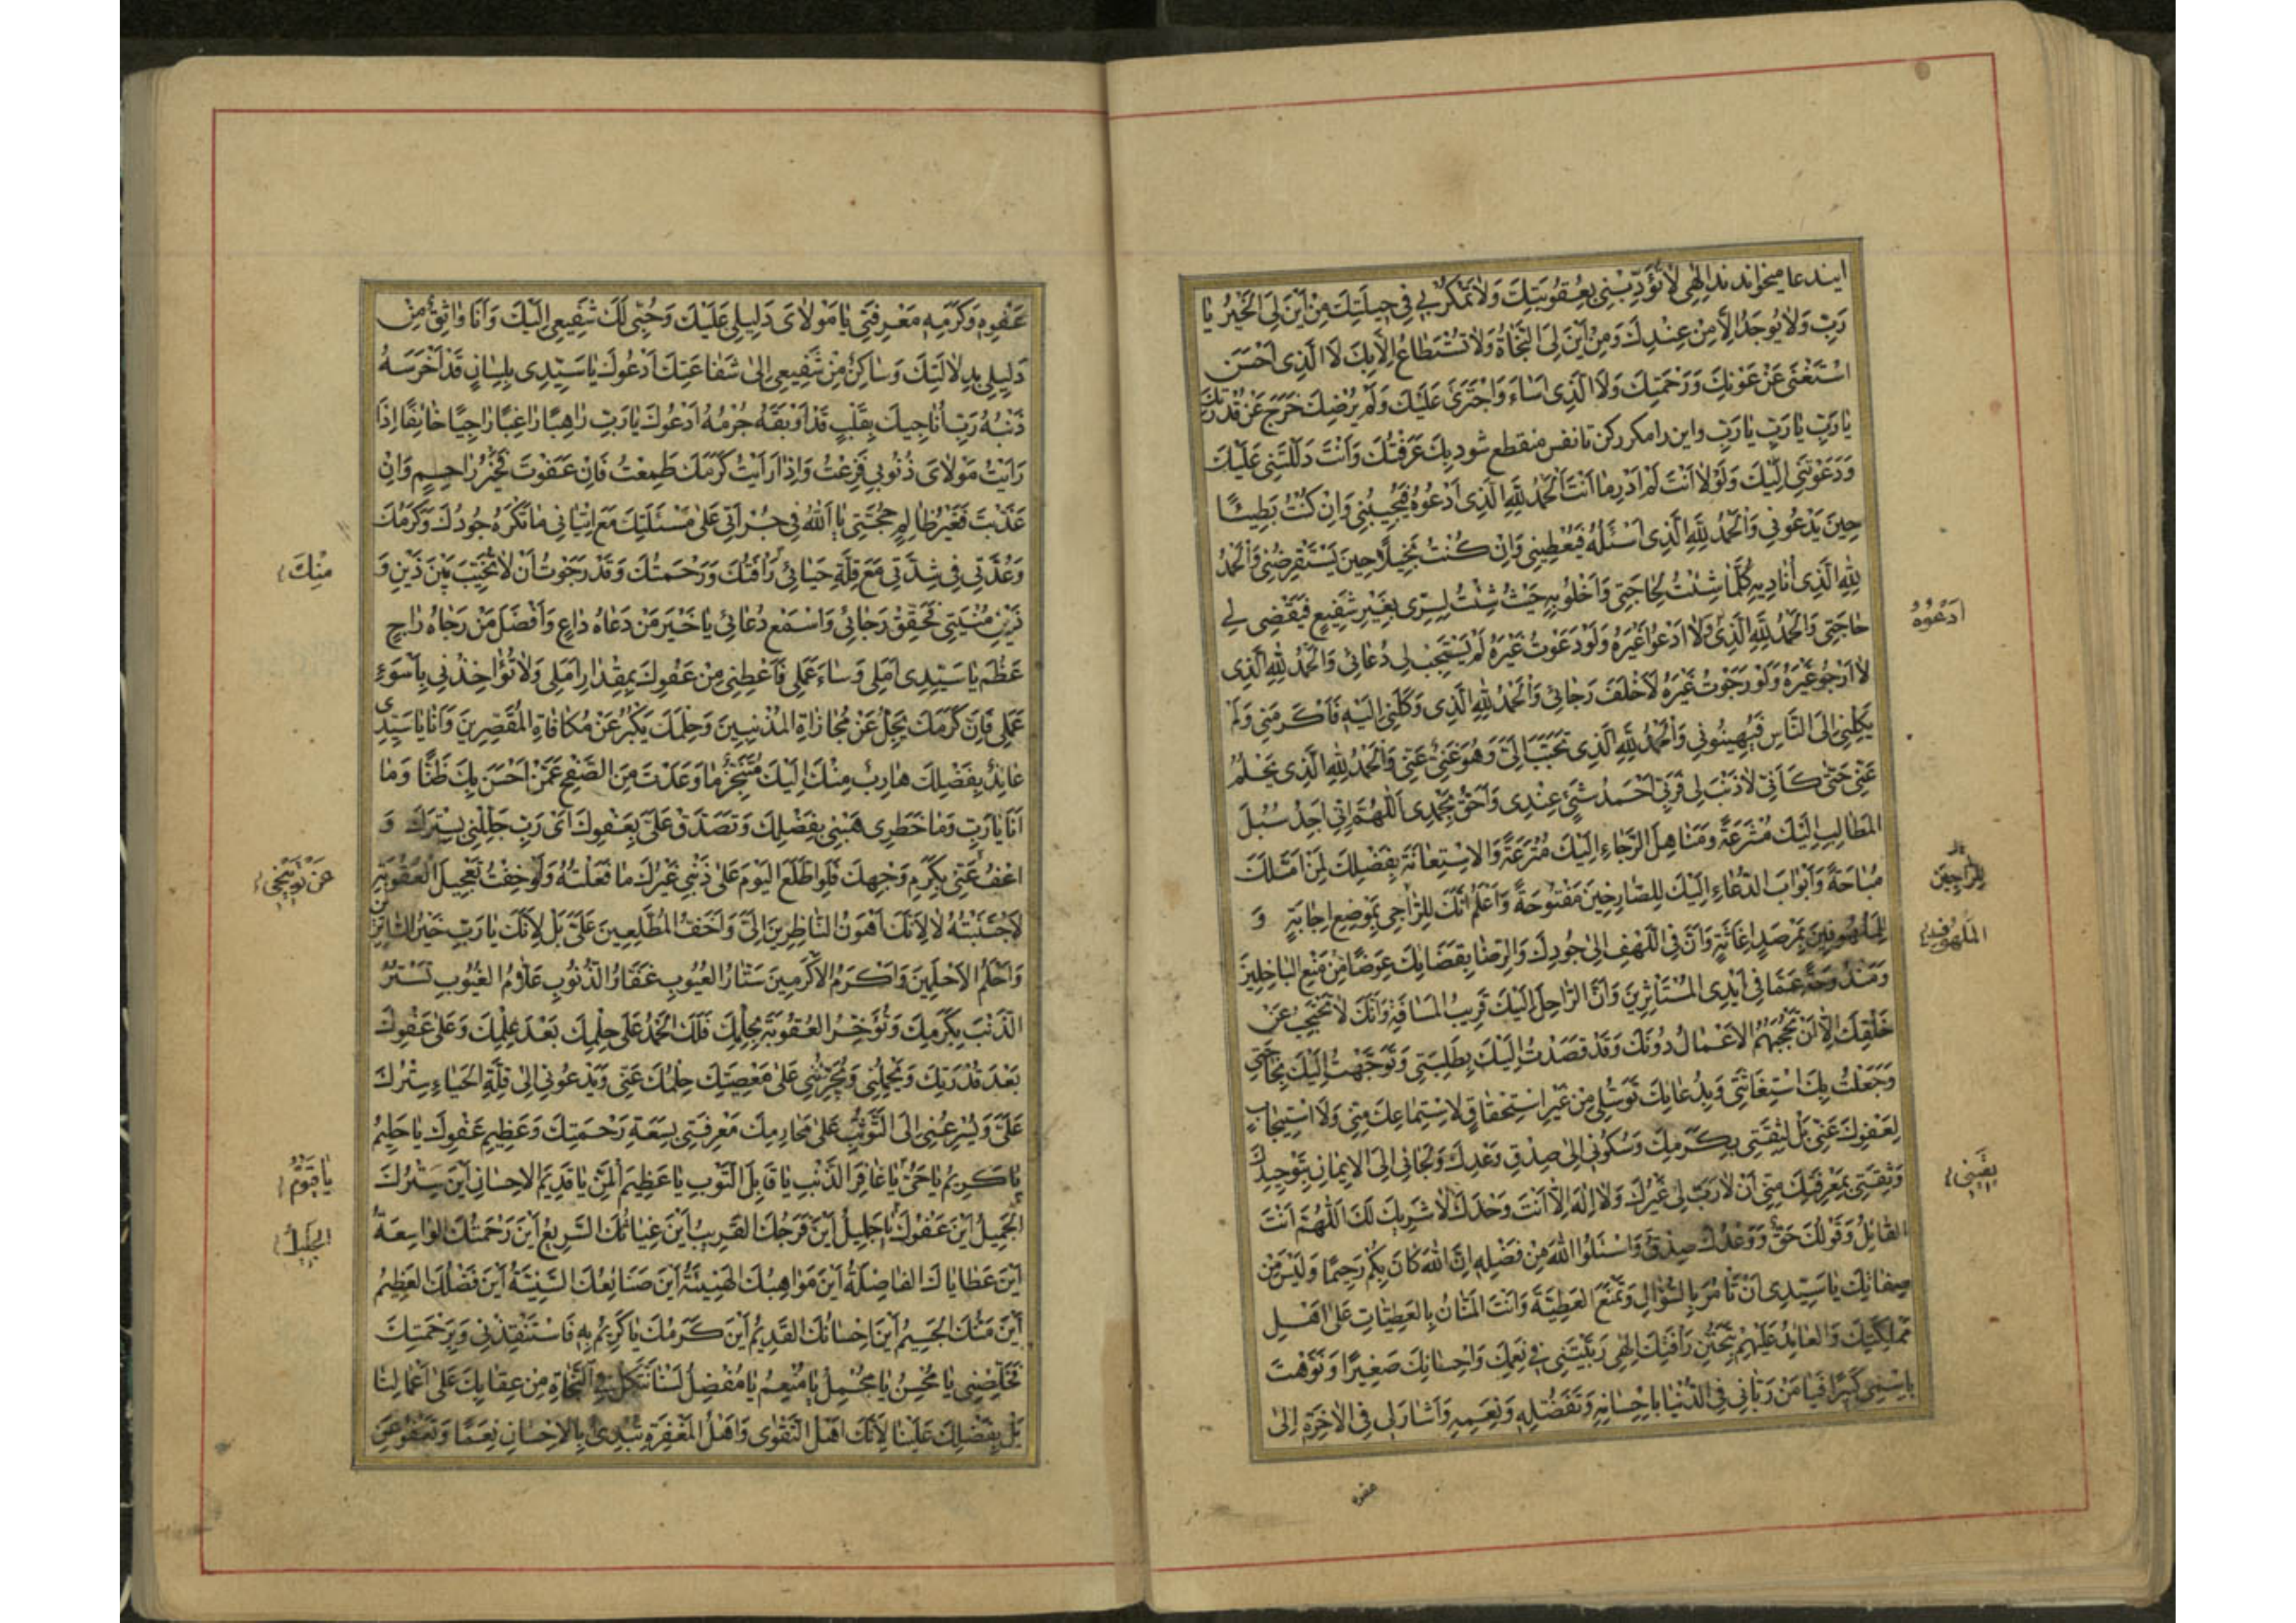 ایندعا میخواندند اِلٰهِی لاٰ تُؤَدِّبْنِی بِعُقُوبَتِكَ وَلاٰ تَمْكُرْ بِی فِی حِیلَتِكَ مِنْ اَیْنَ لِیَ الْخَیْرُ یٰا
رَبِّ وَلاٰ یُوجَدُ اِلاّٰ مِنْ عِنْدِكَ وَمِنْ اَیْنَ لِیَ النَّجٰاةُ وَلاٰ تُسْتَطٰاعُ اِلاّٰ بِكَ لاَ الَّذِی اَحْسَنَ
اسْتَغْنیٰ عَنْ عَوْنِكَ وَرَحْمَتِكَ وَلاَ الَّذِی اَسٰاءَ وَاجْتَرَیَٔ عَلَیْكَ وَلَمْ یُرْضِكَ خَرَجَ عَنْ قُدْرَتِكَ
یٰا رَبِّ یٰا رَبِّ یٰا رَبِّ واین را مکرر کن تا نفس منقطع شود بِكَ عَرَفْتُكَ وَاَنْتَ دَلَلْتَنِی عَلَیْكَ
وَدَعَوْتَنِی اِلَیْكَ وَلَوْلاٰ اَنْتَ لَمْ اَدْرِ مٰا اَنْتَ اَلْحَمْدُ لِلّٰهِ الَّذِی اَدْعُوهُ فَیُجِیبُنِی وَاِنْ كُنْتُ بَطِیئًا
حِینَ یَدْعُونِی وَاَلْحَمْدُ لِلّٰهِ الَّذِی اَسْئَلُهُ فَیُعْطِینِی وَاِنْ كُنْتُ بَخِیلًا حِینَ یَسْتَقْرِضُنِی وَاَلْحَمْدُ
لِلّٰهِ الَّذِی اُنٰادِیهِ كُلَّمٰا شِئْتُ لِحٰاجَتِی وَاَخْلُو بِهِ حَیْثُ شِئْتُ لِسِرِّی بِغَیْرِ شَفِیعٍ فَیَقْضِی لِی
حٰاجَتِی وَالْحَمْدُ لِلّٰهِ الَّذِی وَلاٰ اَدْعُوا غَیْرَهُ وَلَوْ دَعَوْتُ غَیْرَهُ لَمْ یَسْتَجِبْ لِی دُعٰائِی وَالْحَمْدُ لِلّٰهِ الَّذِی
لاٰ اَرْجُو غَیْرَهُ وَلَوْ رَجَوْتُ غَیْرَهُ لَاَخْلَفَ رَجٰائِی وَاَلْحَمْدُ لِلّٰهِ الَّذِی وَكَلَنِی اِلَیْهِ فَاَكْرَمَنِی وَلَمْ
یَكِلْنِی اِلَی النّٰاسِ فَیُهِینُونِی وَاَلْحَمْدُ لِلّٰهِ الَّذِی تَحَبَّبَ اِلَیَّ وَهُوَ غَنِیٌّ عَنِّی وَاَلْحَمْدُ لِلّٰهِ الَّذِی یَحْلُمُ
عَنِّی حَتّٰی كَاَنِّی لاٰ ذَنْبَ لِی فَرَبِّی اَحْمَدُ شَیْءٍ عِنْدِی وَاَحَقُّ بِحَمْدِی اَللّٰهُمَّ اِنِّی اَجِدُ سُبُلَ
الْمَطٰالِبِ اِلَیْكَ مُشْرَعَةً وَمَنٰاهِلَ الرَّجٰاءِ اِلَیْكَ مُتْرَعَةً وَالاِسْتِعٰانَةَ بِفَضْلِكَ لِمَنْ اَمَّلَكَ
مُبٰاحَةً وَاَبْوٰابَ الدُّعٰاءِ اِلَیْكَ لِلصّٰارِخِینَ مَفْتُوحَةً وَاَعْلَمُ اَنَّكَ لِلرّٰاجِی بِمَوْضِعِ اِجٰابَةٍ وَ
لِلْمَلْهُوفِینَ بِمَرْصَدِ اِغٰاثَةٍ وَاَنَّ فِی اللَّهْفِ اِلیٰ جُودِكَ وَالرِّضٰا بِقَضٰائِكَ عِوَضًا مِنْ مَنْعِ الْبٰاخِلِینَ
وَمَنْدُوحَةً عَمّٰا فِی اَیْدِی الْمُسْتَأْثِرِینَ وَاَنَّ الرّٰاحِلَ اِلَیْكَ قَرِیبُ الْمَسٰافَةِ وَاَنَّكَ لاٰ تَحْتَجِبُ عَنْ
خَلْقِكَ اِلاّٰ اَنْ تَحْجُبَهُمُ الْاَعْمٰالُ دُونَكَ وَقَدْ قَصَدْتُ اِلَیْكَ بِطَلِبَتِی وَتَوَجَّهْتُ اِلَیْكَ بِحٰاجَتِی
وَجَعَلْتُ بِكَ اسْتِغٰاثَتِی وَبِدُعٰائِكَ تَوَسُّلِی مِنْ غَیْرِ اسْتِحْقٰاقٍ لِاسْتِمٰاعِكَ مِنِّی وَلاَ اسْتِیجٰابٍ
لِعَفْوِكَ عَنِّی بَلْ لِثِقَتِی بِكَرَمِكَ وَسُكُونِی اِلیٰ صِدْقِ وَعْدِكَ وَلَجٰائِی اِلَی الاِیمٰانِ بِتَوْحِیدِكَ
وَثِقَتِی بِمَعْرِفَتِكَ مِنِّی اَنْ لاٰ رَبَّ لِی غَیْرُكَ وَلاٰ اِلٰهَ اِلاّٰ اَنْتَ وَحْدَكَ لاٰ شَرِیكَ لَكَ اَللّٰهُمَّ اَنْتَ
الْقٰائِلُ وَقَوْلُكَ حَقٌّ وَوَعْدُكَ صِدْقٌ وَاسْئَلُوا اللّٰهَ مِنْ فَضْلِهِ اِنَّ اللّٰهَ كٰانَ بِكُمْ رَحِیمًا وَلَیْسَ مِنْ
صِفٰاتِكَ یٰا سَیِّدِی اَنْ تَأْمُرَ بِالسُّؤٰالِ وَتَمْنَعَ الْعَطِیَّةَ وَاَنْتَ الْمَنّٰانُ بِالْعَطِیّٰاتِ عَلیٰ اَهْلِ
مَمْلَكَتِكَ وَالْعٰائِدُ عَلَیْهِمْ بِتَحَنُّنِ رَأْفَتِكَ اِلٰهِی رَبَّیْتَنِی فِی نِعَمِكَ وَاِحْسٰانِكَ صَغِیرًا وَنَوَّهْتَ
بِاسْمِی كَبِیرًا فَیٰا مَنْ رَبّٰانِی فِی الدُّنْیٰا بِاِحْسٰانِهِ وَتَفَضُّلِهِ وَنِعَمِهِ وَاَشٰارَ لِی فِی الْاٰخِرَةِ اِلیٰ
اَدْعُوهُ
لِلرّٰاجِینَ
الْمَلْهُوفِ
یَقِینِی
عفوه
عَفْوِهِ وَكَرَمِهِ مَعْرِفَتِی یٰا مَوْلاٰیَ دَلِیلِی عَلَیْكَ وَحُبِّی لَكَ شَفِیعِی اِلَیْكَ وَاَنَا وٰاثِقٌ مِنْ
دَلِیلِی بِدِلاٰلَتِكَ وَسٰاكِنٌ مِنْ شَفِیعِی اِلیٰ شَفٰاعَتِكَ اَدْعُوكَ یٰا سَیِّدِی بِلِسٰانٍ قَدْ اَخْرَسَهُ
ذَنْبُهُ رَبِّ اُنٰاجِیكَ بِقَلْبٍ قَدْ اَوْبَقَهُ جُرْمُهُ اَدْعُوكَ یٰا رَبِّ رٰاهِبًا رٰاغِبًا رٰاجِیًا خٰائِفًا اِذٰا
رَاَیْتُ مَوْلاٰیَ ذُنُوبِی فَزِعْتُ وَاِذٰا رَاَیْتُ كَرَمَكَ طَمِعْتُ فَاِنْ عَفَوْتَ فَخَیْرُ رٰاحِمٍ وَاِنْ
عَذَّبْتَ فَغَیْرُ ظٰالِمٍ حُجَّتِی یٰا اَللّٰهُ فِی جُرْاَتِی عَلیٰ مَسْئَلَتِكَ مَعَ اِتْیٰانِی مٰا تَكْرَهُ جُودُكَ وَكَرَمُكَ
وَعُدَّتِی فِی شِدَّتِی مَعَ قِلَّةِ حَیٰائِی رَأْفَتُكَ وَرَحْمَتُكَ وَقَدْ رَجَوْتُ اَنْ لاٰ تُخَیِّبَ بَیْنَ ذَیْنِ وَ
ذَیْنِ مُنْیَتِی فَحَقِّقْ رَجٰائِی وَاسْمَعْ دُعٰائِی یٰا خَیْرَ مَنْ دَعٰاهُ دٰاعٍ وَاَفْضَلَ مَنْ رَجٰاهُ رٰاجٍ
عَظُمَ یٰا سَیِّدِی اَمَلِی وَسٰاءَ عَمَلِی فَاَعْطِنِی مِنْ عَفْوِكَ بِمِقْدٰارِ اَمَلِی وَلاٰ تُؤٰاخِذْنِی بِاَسْوَءِ
عَمَلِی فَاِنَّ كَرَمَكَ یَجِلُّ عَنْ مُجٰازٰاةِ الْمُذْنِبِینَ وَحِلْمَكَ یَكْبُرُ عَنْ مُكٰافٰاةِ الْمُقَصِّرِینَ وَاَنَا یٰا سَیِّدِی
عٰائِذٌ بِفَضْلِكَ هٰارِبٌ مِنْكَ اِلَیْكَ مُتَنَجِّزٌ مٰا وَعَدْتَ مِنَ الصَّفْحِ عَمَّنْ اَحْسَنَ بِكَ ظَنًّا وَمٰا
اَنَا یٰا رَبِّ وَمٰا خَطَرِی هَبْنِی بِفَضْلِكَ وَتَصَدَّقْ عَلَیَّ بِعَفْوِكَ اَیْ رَبِّ جَلِّلْنِی بِسِتْرِكَ وَ
اعْفُ عَنِّی بِكَرَمِ وَجْهِكَ فَلَوِ اطَّلَعَ الْیَوْمَ عَلیٰ ذَنْبِی غَیْرُكَ مٰا فَعَلْتُهُ وَلَوْ خِفْتُ تَعْجِیلَ الْعُقُوبَةِ
لَاجْتَنَبْتُهُ لاٰ لِاَنَّكَ اَهْوَنُ النّٰاظِرِینَ اِلَیَّ وَاَخَفُّ الْمُطَّلِعِینَ عَلَیَّ بَلْ لِاَنَّكَ یٰا رَبِّ خَیْرُ السّٰاتِرِینَ
وَاَحْلَمُ الْاَحْلَمِینَ وَاَكْرَمُ الْاَكْرَمِینَ سَتّٰارُ الْعُیُوبِ غَفّٰارُ الذُّنُوبِ عَلاّٰمُ الْغُیُوبِ تَسْتُرُ
الذَّنْبَ بِكَرَمِكَ وَتُؤَخِّرُ الْعُقُوبَةَ بِحِلْمِكَ فَلَكَ الْحَمْدُ عَلیٰ حِلْمِكَ بَعْدَ عِلْمِكَ وَعَلیٰ عَفْوِكَ
بَعْدَ قُدْرَتِكَ وَیَحْمِلُنِی وَیُجَرِّئُنِی عَلیٰ مَعْصِیَتِكَ حِلْمُكَ عَنِّی وَیَدْعُونِی اِلیٰ قِلَّةِ الْحَیٰاءِ سِتْرُكَ
عَلَیَّ وَیُسْرِعُنِی اِلَی التَّوَثُّبِ عَلیٰ مَحٰارِمِكَ مَعْرِفَتِی بِسَعَةِ رَحْمَتِكَ وَعَظِیمِ عَفْوِكَ یٰا حَلِیمُ
یٰا كَرِیمُ یٰا حَیُّ یٰا غٰافِرَ الذَّنْبِ یٰا قٰابِلَ التَّوْبِ یٰا عَظِیمَ الْمَنِّ یٰا قَدِیمَ الاِحْسٰانِ اَیْنَ سِتْرُكَ
الْجَمِیلُ اَیْنَ عَفْوُكَ یٰا جَلِیلُ اَیْنَ فَرَجُكَ الْقَرِیبُ اَیْنَ غِیٰاثُكَ السَّرِیعُ اَیْنَ رَحْمَتُكَ الْوٰاسِعَةُ
اَیْنَ عَطٰایٰاكَ الْفٰاضِلَةُ اَیْنَ مَوٰاهِبُكَ الْهَنِیئَةُ اَیْنَ صَنٰائِعُكَ السَّنِیَّةُ اَیْنَ فَضْلُكَ الْعَظِیمُ
اَیْنَ مَنُّكَ الْجَسِیمُ اَیْنَ اِحْسٰانُكَ الْقَدِیمُ اَیْنَ كَرَمُكَ یٰا كَرِیمُ بِهِ فَاسْتَنْقِذْنِی وَبِرَحْمَتِكَ
فَخَلِّصْنِی یٰا مُحْسِنُ یٰا مُجْمِلُ یٰا مُنْعِمُ یٰا مُفْضِلُ لَسْنٰا نَتَّكِلُ فِی النَّجٰاةِ مِنْ عِقٰابِكَ عَلیٰ اَعْمٰالِنٰا
بَلْ بِفَضْلِكَ عَلَیْنٰا لِاَنَّكَ اَهْلُ التَّقْویٰ وَاَهْلُ الْمَغْفِرَةِ تُبْدِئُ بِالاِحْسٰانِ نِعَمًا وَتَعْفُو عَنِ
مِنْكَ
عَنْ تَوْبِیخِی
یٰا قَیُّومُ
الْجَلِیلُ